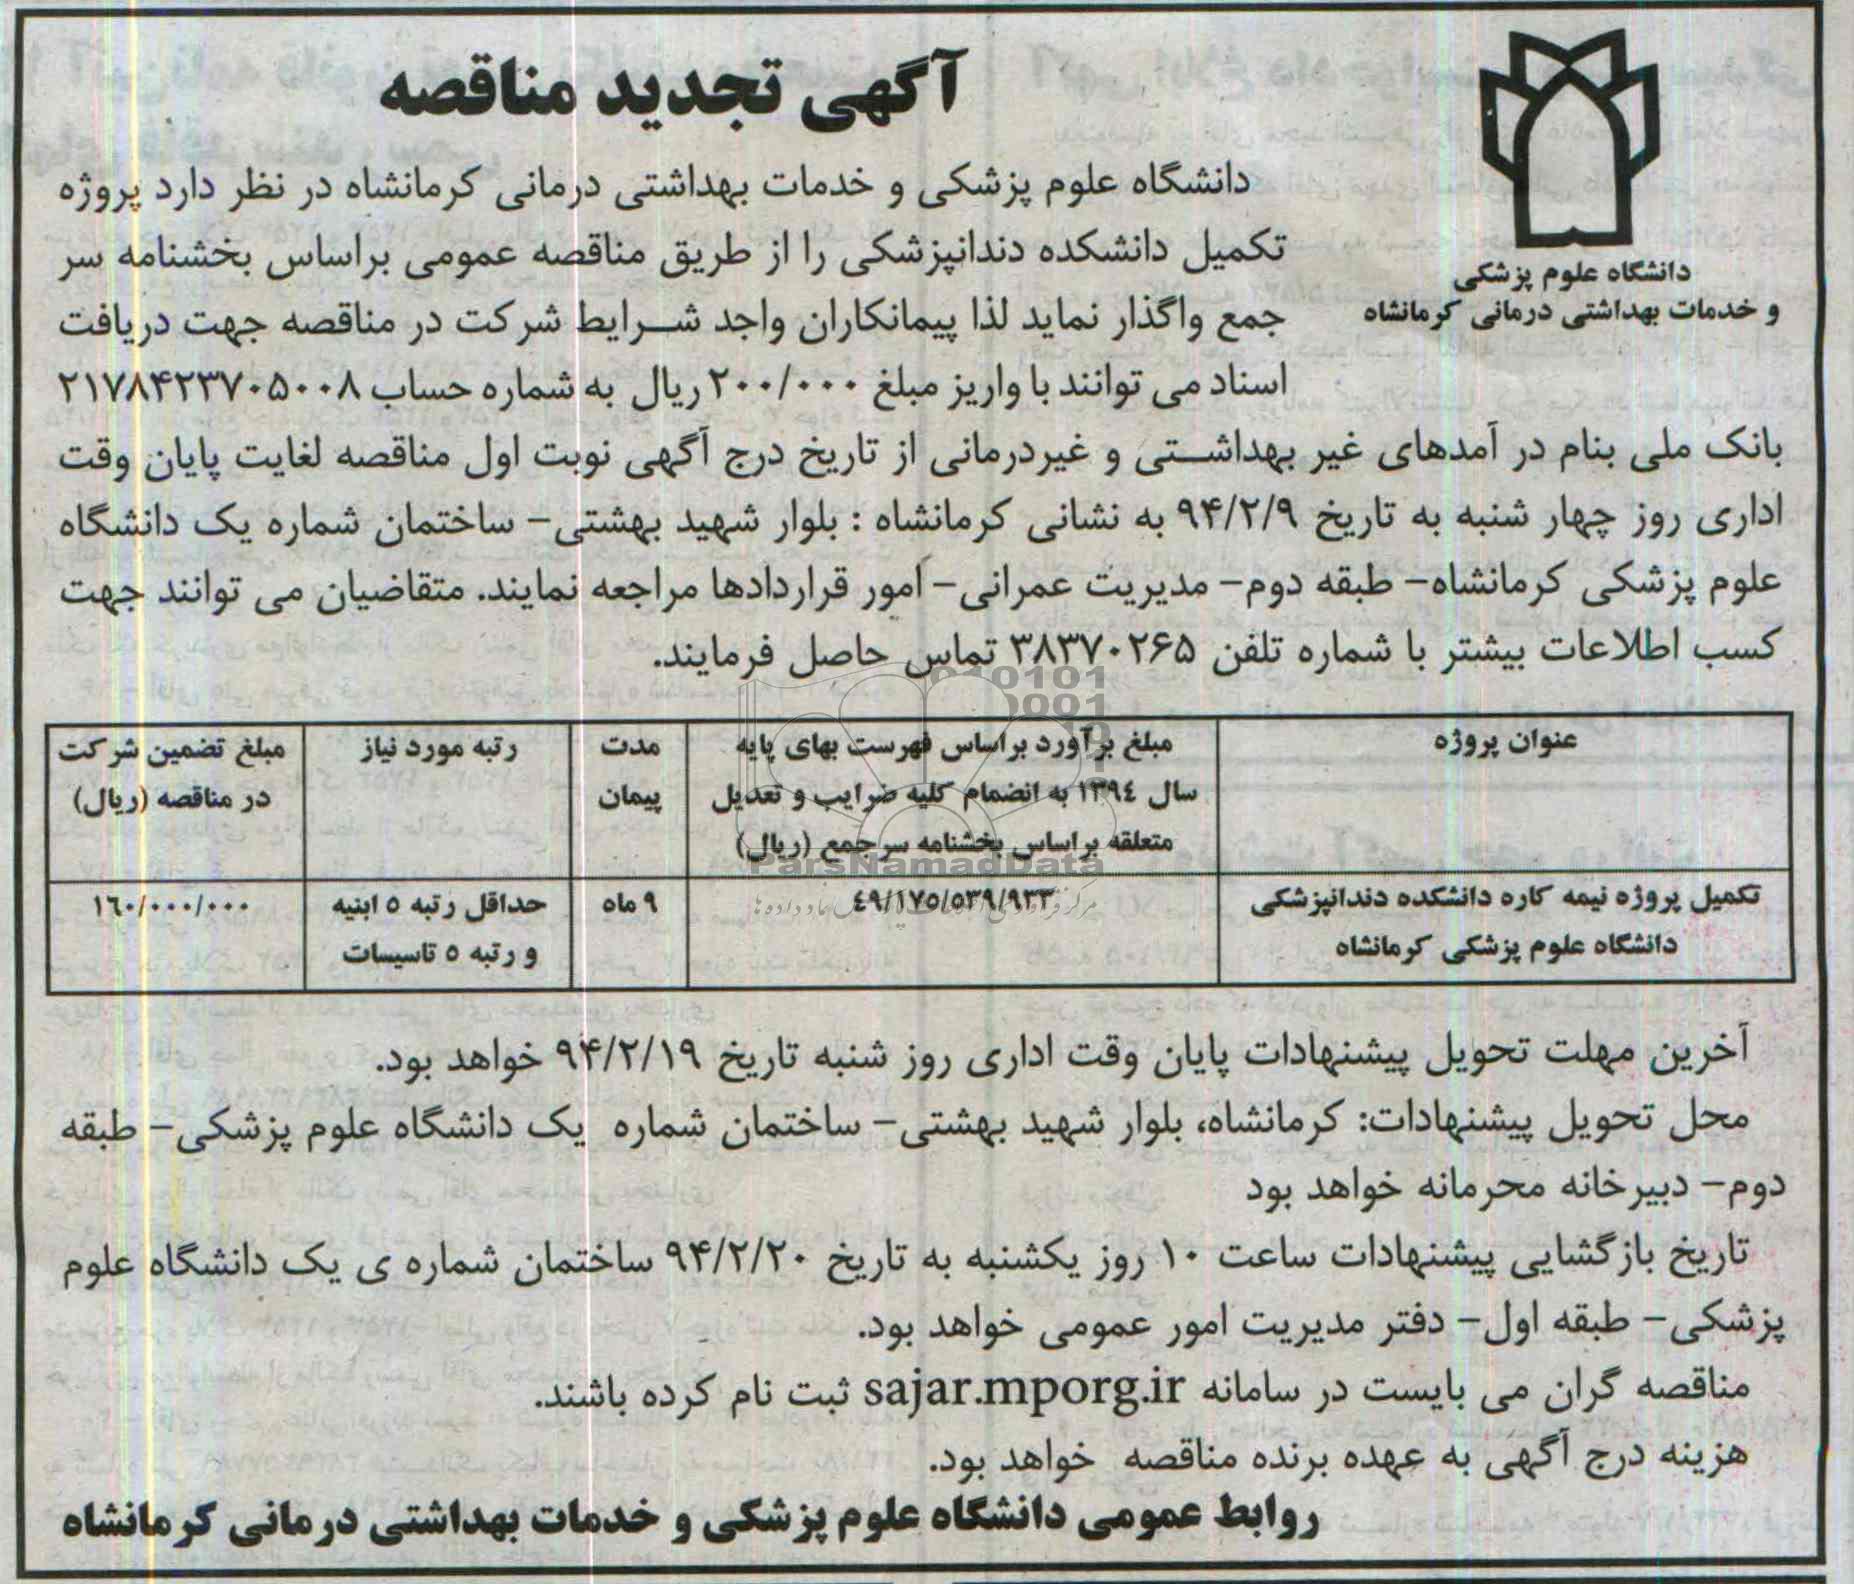 آگهی تجدید مناقصه
دانشگاه علوم پزشکی
و خدمات بهداشتی درمانی کرمانشاه
دانشگاه علوم پزشکی و خدمات بهداشتی درمانی کرمانشاه در نظر دارد پروژه
تکمیل دانشکده دندانپزشکی را از طریق مناقصه عمومی براساس بخشنامه سر
جمع واگذار نماید لذا پیمانکاران واجد شرایط شرکت در مناقصه جهت دریافت
اسناد می توانند با واریز مبلغ ۲۰۰/۰۰۰ ریال به شماره حساب ۲۱۷۸۴۲۳۷۰۵۰۰۸
بانک ملی بنام در آمدهای غیر بهداشتی و غیردرمانی از تاریخ درج آگهی نوبت اول مناقصه لغایت پایان وقت
اداری روز چهار شنبه به تاریخ ۹۴/۲/۹ به نشانی کرمانشاه : بلوار شهید بهشتی- ساختمان شماره یک دانشگاه
علوم پزشکی کرمانشاه- طبقه دوم- مدیریت عمرانی- امور قراردادها مراجعه نمایند. متقاضیان می توانند جهت
کسب اطلاعات بیشتر با شماره تلفن ۳۸۳۷۰۲۶۵ تماس حاصل فرمایند.
عنوان پروژه
مبلغ برآورد براساس فهرست بهای پایه
سال ۱۳۹٤ به انضمام کلیه ضرایب و تعدیل
متعلقه براساس بخشنامه سرجمع (ریال)
مدت
پیمان
رتبه مورد نیاز
مبلغ تضمین شرکت
در مناقصه (ریال)
تکمیل پروژه نیمه کاره دانشکده دندانپزشکی
دانشگاه علوم پزشکی کرمانشاه
٤۹/۱۷۵/۵۳۹/۹۳۳
۹ ماه
حداقل رتبه ۵ ابنیه
و رتبه ۵ تاسیسات
۱٦۰/۰۰۰/۰۰۰
ParsNamadData
آخرین مهلت تحویل پیشنهادات پایان وقت اداری روز شنبه تاریخ ۹۴/۲/۱۹ خواهد بود.
محل تحویل پیشنهادات: کرمانشاه، بلوار شهید بهشتی- ساختمان شماره یک دانشگاه علوم پزشکی- طبقه
دوم- دبیرخانه محرمانه خواهد بود
تاریخ بازگشایی پیشنهادات ساعت ۱۰ روز یکشنبه به تاریخ ۹۴/۲/۲۰ ساختمان شماره ی یک دانشگاه علوم
پزشکی- طبقه اول- دفتر مدیریت امور عمومی خواهد بود.
مناقصه گران می بایست در سامانه sajar.mporg.ir ثبت نام کرده باشند.
هزینه درج آگهی به عهده برنده مناقصه خواهد بود.
روابط عمومی دانشگاه علوم پزشکی و خدمات بهداشتی درمانی کرمانشاه